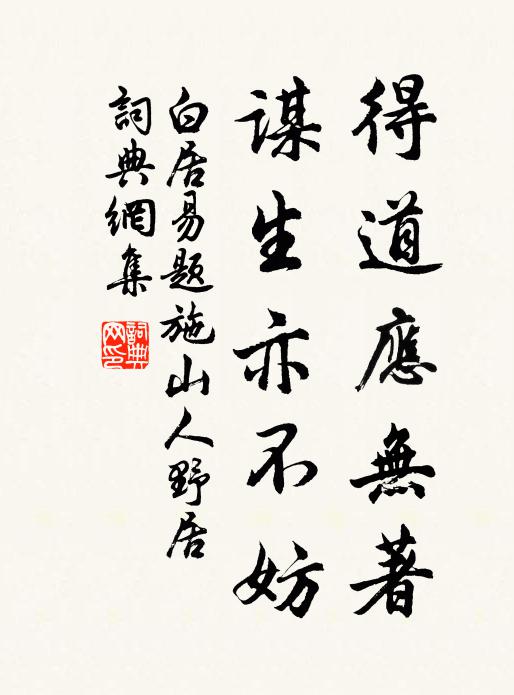 得道應無著
謀生亦不妨
白居易題施山人野居
詞典網集
詞典網印